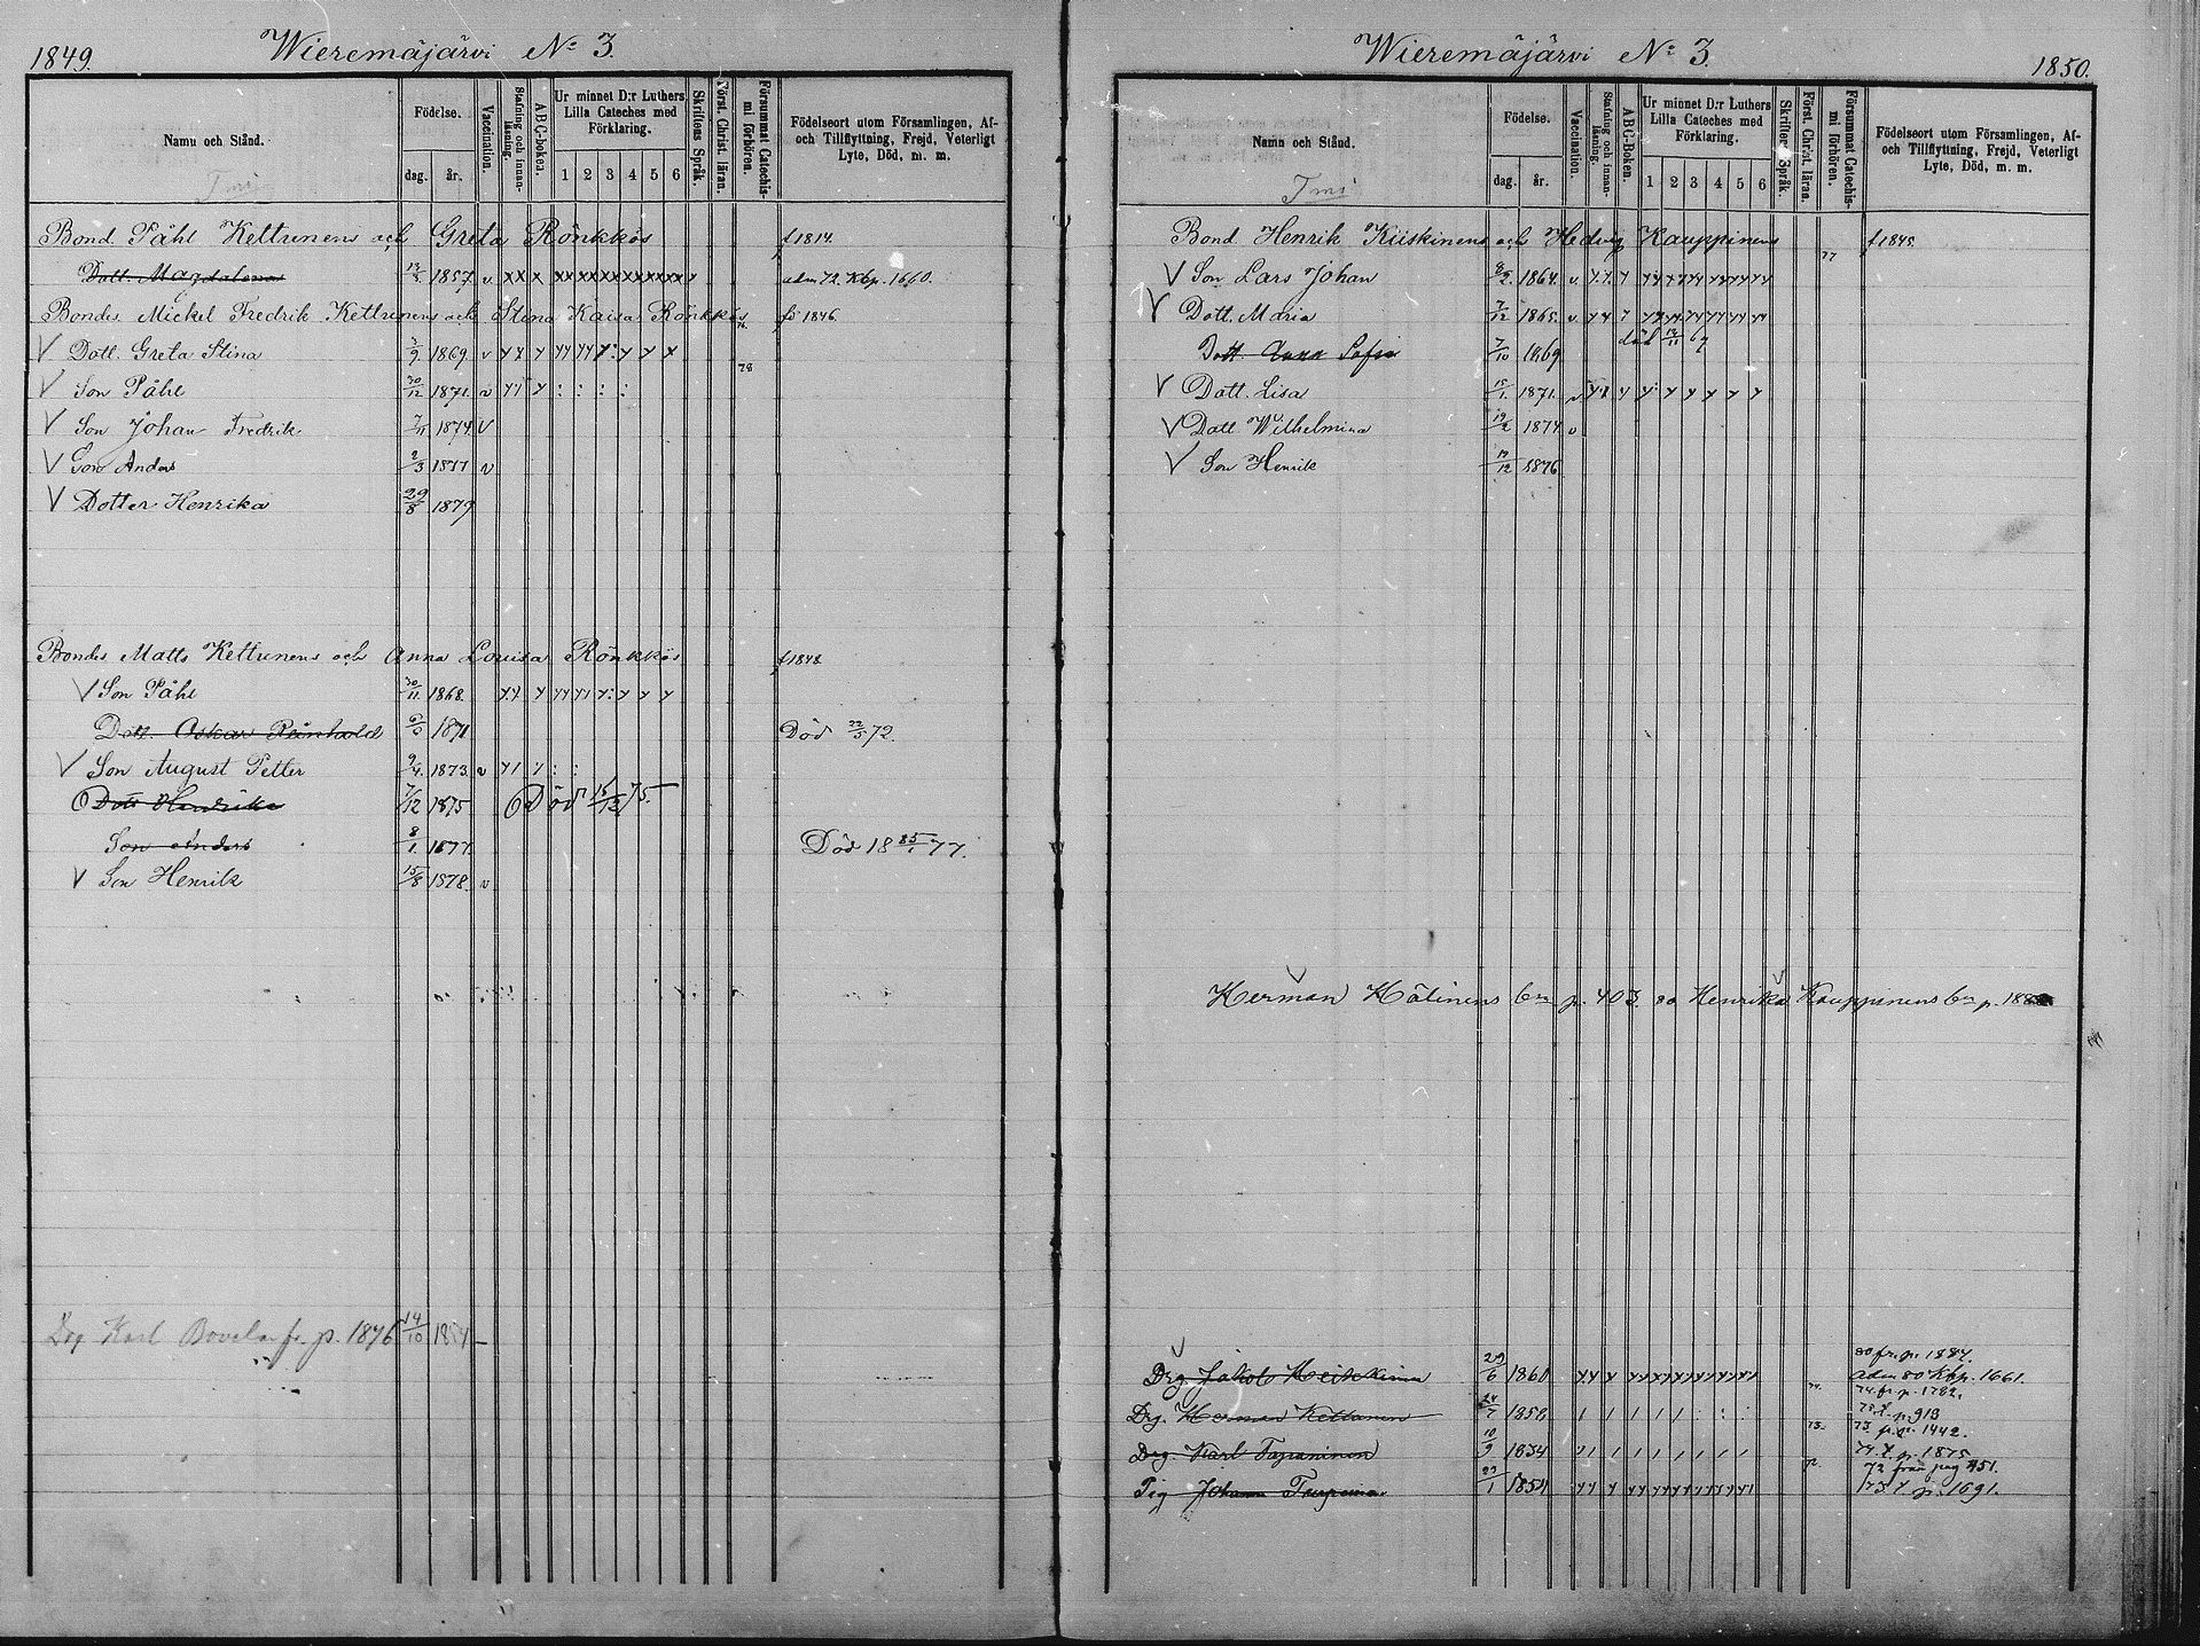 1849.
Wieremäjärvi No 3.
Namn och Stånd.
Födelse.
dag. år.
Vaccination.
Stafning och innanläsning.
ABC-boken.
Ur minnet D:r Luthers Lilla Cateches med Förklaring.
1 2 3 4 5 6
Skriftens Språk.
Först. Christ. läran.
Försummat Catechismi förhören.
Födelseort utom Församlingen, Af- och Tillflyttning, Frejd, Veterligt Lyte, Död, m. m.
Tmi
Bond. Påhl Kettunens och Greta Rönkkös f 1814.
Dott. Magdalena 1857 v x x x x x x x x x x x x x x adm 72. Kbp. 1660.
Bondes Mickel Fredrik Kettunens och Stina Kaisa Rönkkös fö 1846.
V Dott. Greta Stina 3/9 1869 v
78
V Son Påhl 30/12 1871. v
V Son Johan Fredrik 7/11 1874. V
V Son Anders 2/3 1877 v
V Dotter Henrika 29/8 1879
Bondes Matts Kettunens och Anna Louisa Rönkkös f 1848
V Son Påhl 30/11. 1868.
Dott. Oskar Reinhold 1871 Död 22/5 72.
V Son August Petter 9/4. 1873. v
Dott Henrika 7/12 1875 Död 15/12 75.
Son Anders 8/1. 1877. Död 18 25/1 77.
V Son Henrik 15/8 1878. v
Drg Karl fr. p. 1876 14/10
Wieremäjärvi No 3.
1850.
Namn och Stånd.
Födelse.
dag. år.
Vaccination.
Stafning och innanläsning.
ABC-Boken.
Ur minnet D:r Luthers Lilla Cateches med Förklaring.
1 2 3 4 5 6
Skriftens Språk.
Först. Christ. läran.
Försummat Catechismi förhören.
Födelseort utom Församlingen, Af- och Tillflyttning, Frejd, Veterligt Lyte, Död, m. m.
Tmi
Bond. Henrik Kiiskinens och Hedvig Kauppinens f 1845.
77
V Son Lars Johan 8/2. 1864. v.
V Dott. Maria 7/12 1865. v.
Dott. Anna Sofia 7/10 1869 död 12/11 69
V Dott. Lisa 15/1. 1871. v
V Dott Wilhelmina 19/2 1874 v
V Son Henrik 19/12 1876
Herman Hätinens p. 403. Henrika Kauppinens p.
80 fr. p. 1884.
Drg. Jakob Heikkinen 29/6 1860 adm 80 Kbp. 1661.
74. fr. p. 1782.
Drg. Herman Kettunen 24/7 1858 p 913
73. p. 1442.
Drg. Karl Tapaninen 10/9 1854 p. 1875
72 från pag 451.
Pig Johanna 23/1 1854 p. 1691.